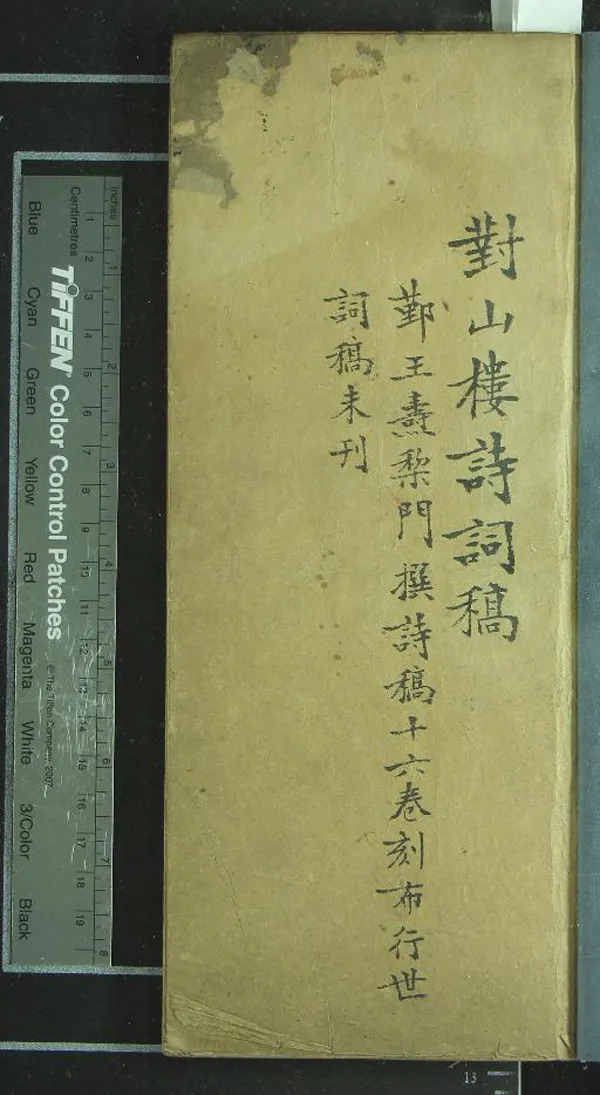 對山樓詩詞稿
鄞王壽黎門撰詩稿十六卷刻布行世
詞稿未刊
Inches
1 2 3 4 5 6 7 8
Centimetres
1 2 3 4 5 6 7 8 9 10 11 12 13 14 15 16 17 18 19
TIFFEN® Color Control Patches
© The Tiffen Company, 2007
Blue Cyan Green Yellow Red Magenta White 3/Color Black
13